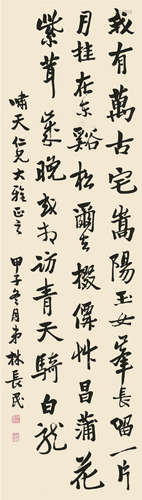 我有萬古宅嵩陽玉女峯長留一片
月挂在東谿松爾去掇僊艸昌蒲花
紫茸歲晚或相訪青天騎白龍
嘯天仁兄大雅正之
甲子冬月弟林長民